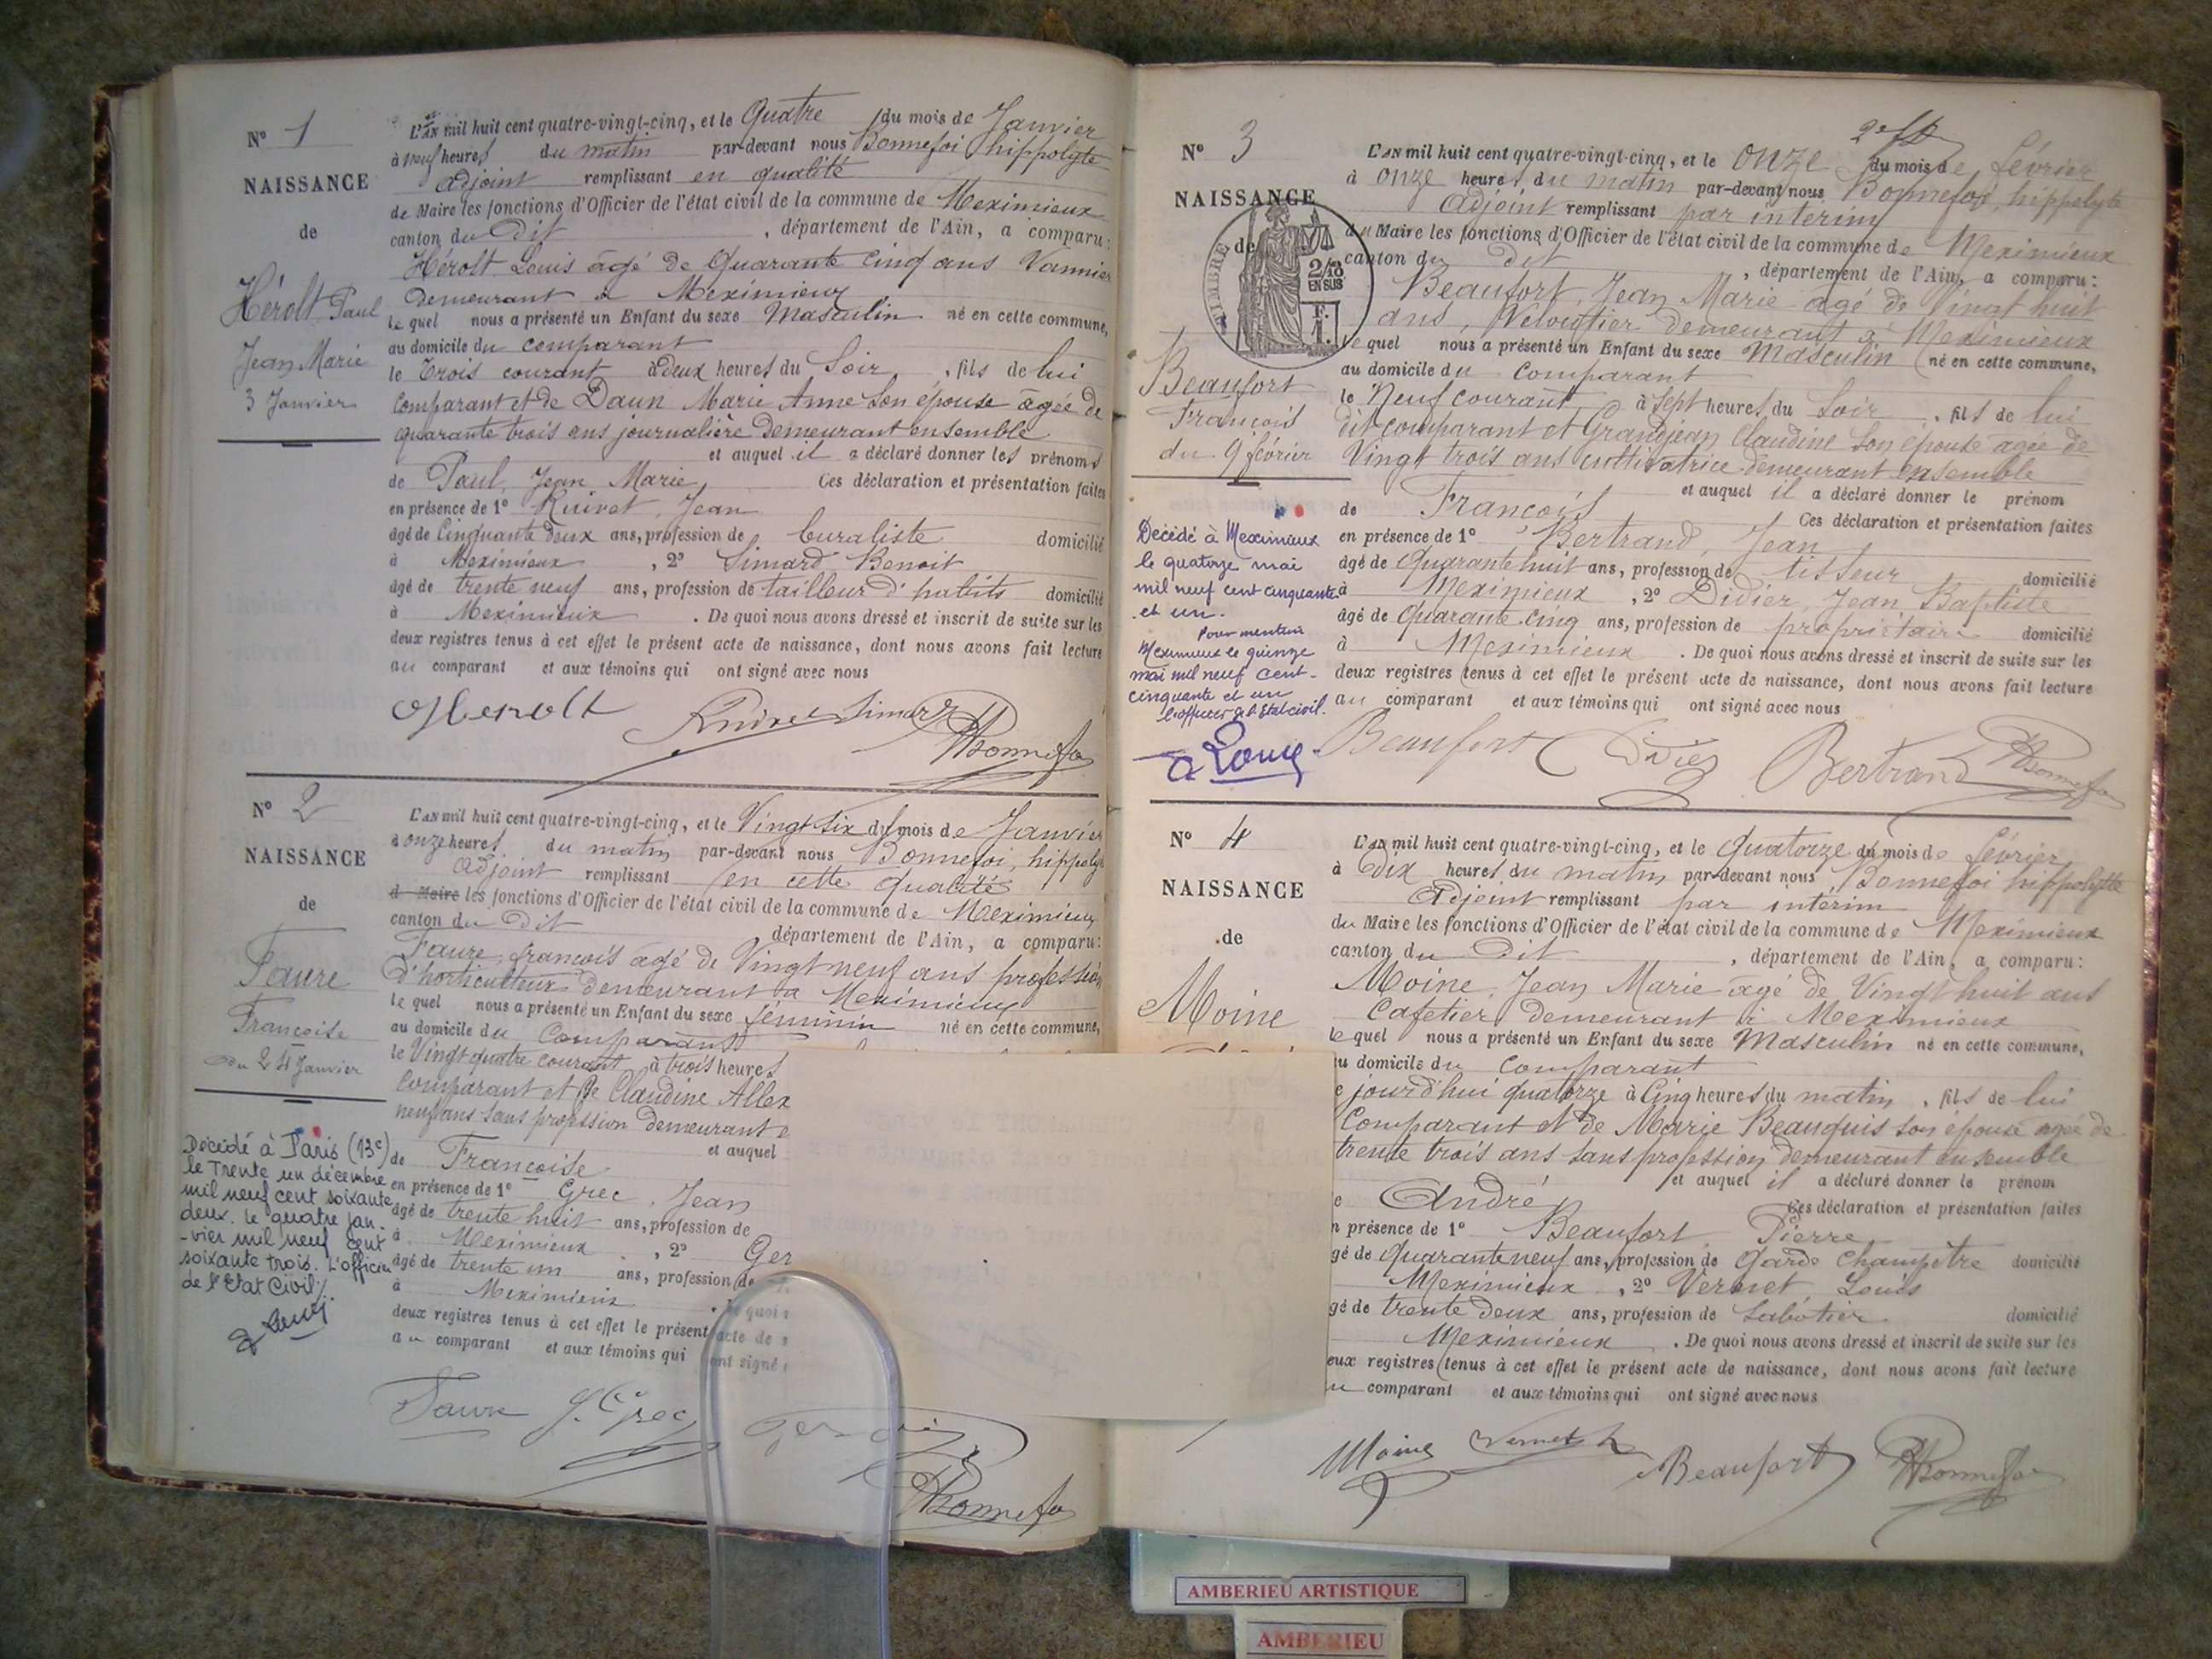 N° 1
NAISSANCE
de
Hérolt Paul
Jean Marie
3 Janvier
L'AN mil huit cent quatre-vingt-cinq, et le Quatre du mois de Janvier
à neuf heures du matin par-devant nous Bonnefoi hippolyte
adjoint remplissant en qualité
de Maire les fonctions d'Officier de l'état civil de la commune de Meximieux
canton du Dit, département de l'Ain, a comparu:
Hérolt Louis âgé de Quarante Cinq ans Vannier
Demeurant à Meximieux
le quel nous a présenté un Enfant du sexe Masculin né en cette commune,
au domicile du comparant
le trois courant à deux heures du Soir, fils de lui
Comparant et de Daun Marie Anne Son épouse âgée de
quarante trois ans journalière Demeurant ensemble
et auquel il a déclaré donner les prénoms
de Paul, Jean Marie Ces déclaration et présentation faites
en présence de 1° Ruivet, Jean
âgé de Cinquante deux ans, profession de buraliste domicilié
à Meximieux, 2° Simard Benoit
âgé de trente neuf ans, profession de tailleur d'habits domicilié
à Meximieux. De quoi nous avons dressé et inscrit de suite sur les
deux registres tenus à cet effet le présent acte de naissance, dont nous avons fait lecture
au comparant et aux témoins qui ont signé avec nous
Herolt Ruivet Simard HBonnefoi
N° 2
NAISSANCE
de
Faure
Françoise
du 24 Janvier
Décédé à Paris (13e)
le Trente un décembre
mil neuf cent soixante
deux. le quatre jan-
-vier mil neuf cent
soixante trois. L'officier
de l'Etat Civil /.
L'AN mil huit cent quatre-vingt-cinq, et le Vingt Six du mois de Janvier
à onze heures du matin par-devant nous Bonnefoi, hippolyte
Adjoint remplissant en cette qualité
d Maire les fonctions d'Officier de l'état civil de la commune de Meximieux
canton du Dit, département de l'Ain, a comparu:
Faure, françois âgé de Vingt neuf ans profession
d'horticulteur demeurant à Meximieux
le quel nous a présenté un Enfant du sexe féminin né en cette commune,
au domicile du Comparant
le Vingt quatre courant à trois heures
Comparant et de Claudine Allex
neuf ans sans profession demeurant e
et auquel
de Françoise
en présence de 1° Grec, Jean
âgé de trente huit ans, profession de
à Meximieux, 2° Ger
âgé de trente un ans, profession de
à Meximieux. De quoi n
deux registres tenus à cet effet le présent acte de n
au comparant et aux témoins qui ont signé
Faure J. Grec HBonnefoi
N° 3
NAISSANCE
de
TIMBRE
2/10
EN SUS
F.
1.
Beaufort
François
du 9 février
Décédé à Meximieux
le quatorze mai
mil neuf cent cinquante
et un.
Pour mention
Meximieux le quinze
mai mil neuf cent-
cinquante et un
l'officier de l'Etat civil.
L'AN mil huit cent quatre-vingt-cinq, et le Onze du mois de février
à Onze heures du matin par-devant nous Bonnefoi, hippolyte
Adjoint remplissant par interim
du Maire les fonctions d'Officier de l'état civil de la commune de Meximieux
canton du Dit, département de l'Ain, a comparu:
Beaufort, Jean Marie âgé de Vingt huit
ans, Veloutier demeurant à Meximieux
le quel nous a présenté un Enfant du sexe Masculin né en cette commune,
au domicile du Comparant
le Neuf courant à Sept heures du Soir, fils de lui
dit comparant et Grandjean Claudine Son épouse âgée de
Vingt trois ans cultivatrice demeurant ensemble
et auquel il a déclaré donner le prénom
de François Ces déclaration et présentation faites
en présence de 1° Bertrand, Jean
âgé de Quarante huit ans, profession de tisseur domicilié
à Meximieux, 2° Didier, Jean Baptiste
âgé de Quarante Cinq ans, profession de propriétaire domicilié
à Meximieux. De quoi nous avons dressé et inscrit de suite sur les
deux registres tenus à cet effet le présent acte de naissance, dont nous avons fait lecture
au comparant et aux témoins qui ont signé avec nous
Beaufort Didier Bertrand HBonnefoi
N° 4
NAISSANCE
de
Moine
L'AN mil huit cent quatre-vingt-cinq, et le Quatorze du mois de février
à Dix heures du matin par-devant nous Bonnefoi hippolytte
Adjoint remplissant par intérim
du Maire les fonctions d'Officier de l'état civil de la commune de Meximieux
canton du Dit, département de l'Ain, a comparu:
Moine, Jean Marie âgé de Vingt huit ans
Cafetier demeurant à Meximieux
le quel nous a présenté un Enfant du sexe Masculin né en cette commune,
u domicile du Comparant
e jourd'hui quatorze à Cinq heures du matin, fils de lui
Comparant et de Marie Beauquis son épouse agée de
trente trois ans sans profession demeurant ensemble
et auquel il a déclaré donner le prénom
e André Ces déclaration et présentation faites
n présence de 1° Beaufort, Pierre
gé de Quarante neuf ans, profession de Garde Champêtre domicilié
Meximieux, 2° Vernet, Louis
gé de trente deux ans, profession de Sabotier domicilié
Meximieux. De quoi nous avons dressé et inscrit de suite sur les
eux registres tenus à cet effet le présent acte de naissance, dont nous avons fait lecture
u comparant et aux témoins qui ont signé avec nous
Moine Vernet L Beaufort HBonnefoi
AMBERIEU ARTISTIQUE
AMBERIEU